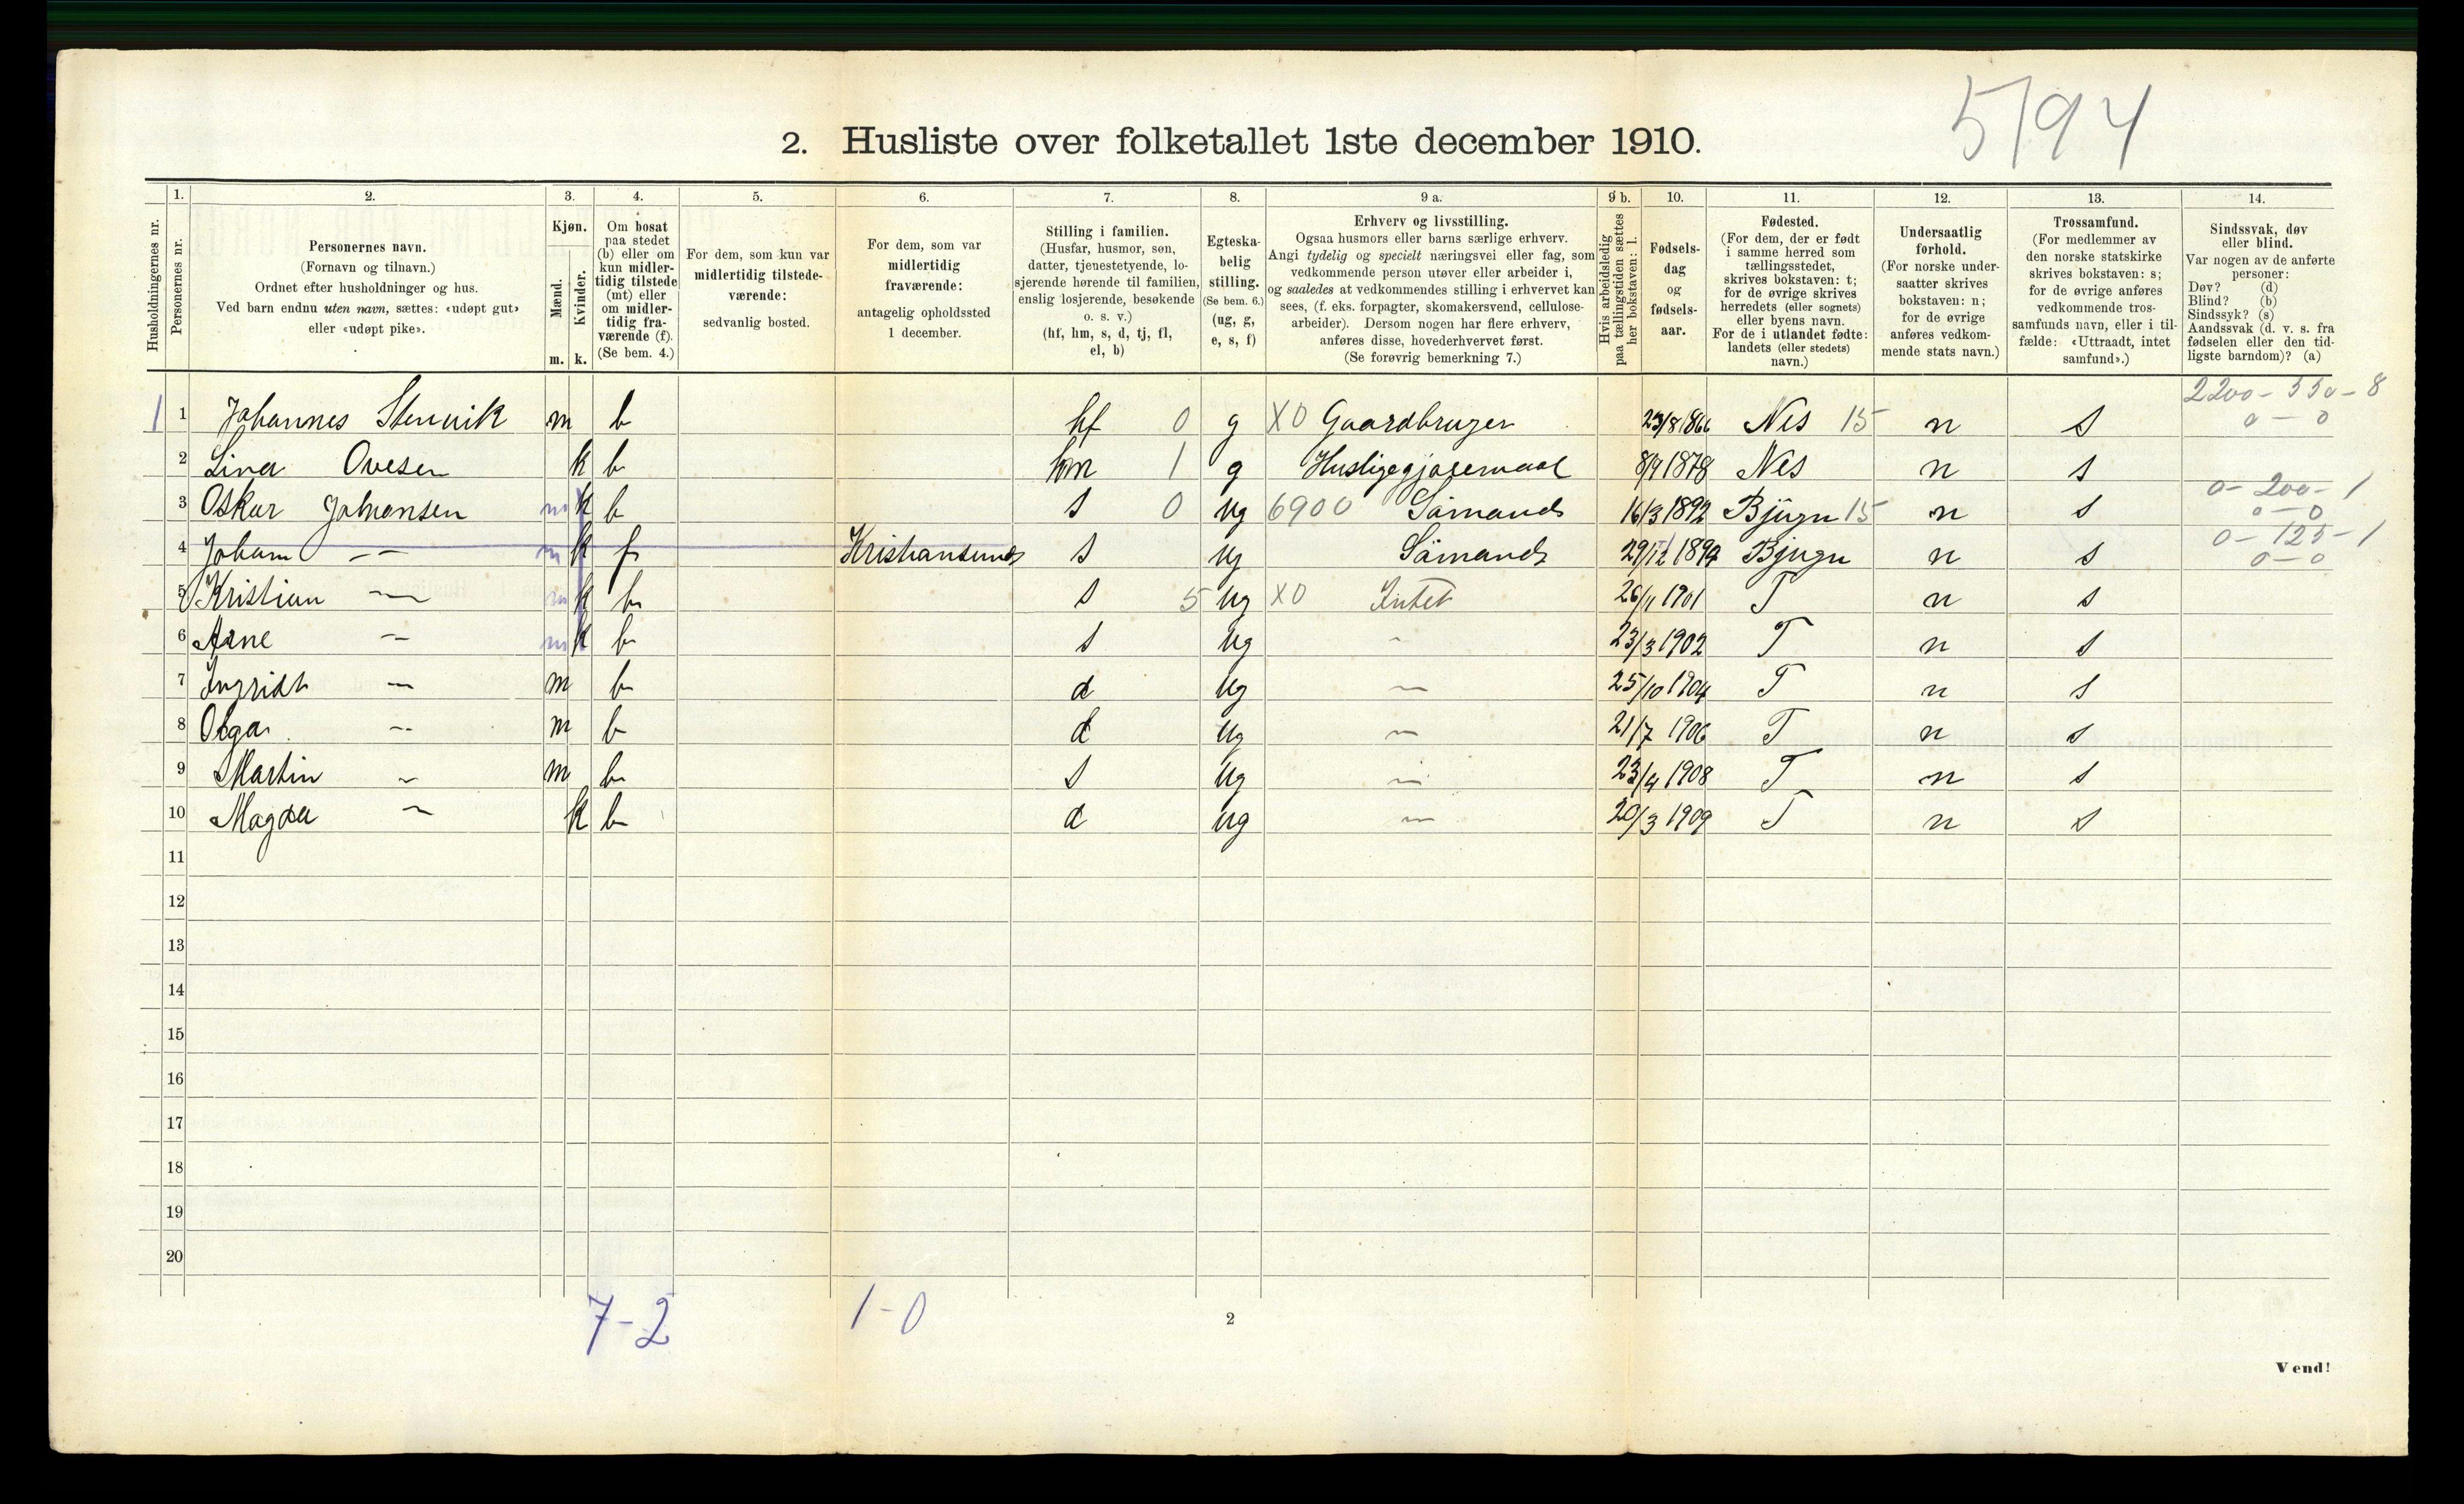 5194
2. Husliste over folketallet 1ste december 1910.
Husholdningernes nr.
1. Personernes nr.
2. Personernes navn. (Fornavn og tilnavn.) Ordnet efter husholdninger og hus. Ved barn endnu uten navn, sættes: «udøpt gut» eller «udøpt pike».
3. Kjøn. Mænd. m. Kvinder. k.
4. Om bosat paa stedet (b) eller om kun midlertidig tilstede (mt) eller om midlertidig fraværende (f). (Se bem. 4.)
5. For dem, som kun var midlertidig tilstedeværende: sedvanlig bosted.
6. For dem, som var midlertidig fraværende: antagelig opholdssted 1 december.
7. Stilling i familien. (Husfar, husmor, søn, datter, tjenestetyende, losjerende hørende til familien, enslig losjerende, besøkende o. s. v.) (hf, hm, s, d, tj, fl, el, b)
8. Egteskabelig stilling. (Se bem. 6.) (ug, g, e, s, f)
9 a. Erhverv og livsstilling. Ogsaa husmors eller barns særlige erhverv. Angi tydelig og specielt næringsvei eller fag, som vedkommende person utøver eller arbeider i, og saaledes at vedkommendes stilling i erhvervet kan sees, (f. eks. forpagter, skomakersvend, cellulosearbeider). Dersom nogen har flere erhverv, anføres disse, hovederhvervet først. (Se forøvrig bemerkning 7.)
9 b. Hvis arbeidsledig paa tællingstiden sættes her bokstaven: l.
10. Fødselsdag og fødselsaar.
11. Fødested. (For dem, der er født i samme herred som tællingsstedet, skrives bokstaven: t; for de øvrige skrives herredets (eller sognets) eller byens navn. For de i utlandet fødte: landets (eller stedets) navn.)
12. Undersaatlig forhold. (For norske undersaatter skrives bokstaven: n; for de øvrige anføres vedkommende stats navn.)
13. Trossamfund. (For medlemmer av den norske statskirke skrives bokstaven: s; for de øvrige anføres vedkommende trossamfunds navn, eller i tilfælde: «Uttraadt, intet samfund».)
14. Sindssvak, døv eller blind. Var nogen av de anførte personer: Døv? (d) Blind? (b) Sindssyk? (s) Aandssvak (d. v. s. fra fødselen eller den tidligste barndom)? (a)
2200-550-8
1 1 Johannes Stenvik m b hf 0 g X0 Gaardbruger 23/8 1866 Nes 15 n s 0-0
2 Lina Ovesen k b hm 1 g Husligegjøremaal 8/9 1878 Nes n s
0-200-1
3 Oskar Johansen m k b s 0 ug 6900 Sömand 16/3 1892 Bjugn 15 n s 0-0
0-125-1
4 Johan -- m k f Kristiansund s ug Sömand 29/12 1894 Bjugn n s 0-0
5 Kristian — m k b s 5 ug X0 Intet 26/11 1901 T n s
6 Arne — m k b s ug - 23/3 1902 T n s
7 Ingrid — m b d ug — 25/10 1904 T n s
8 Olga — m b d ug — 21/7 1906 T n s
9 Martin - m b s ug — 23/4 1908 T n s
10 Magda — k b d ug — 20/3 1909 T n s
11
12
13
14
15
16
17
18
19
20
7-2 1-0
2
Vend!